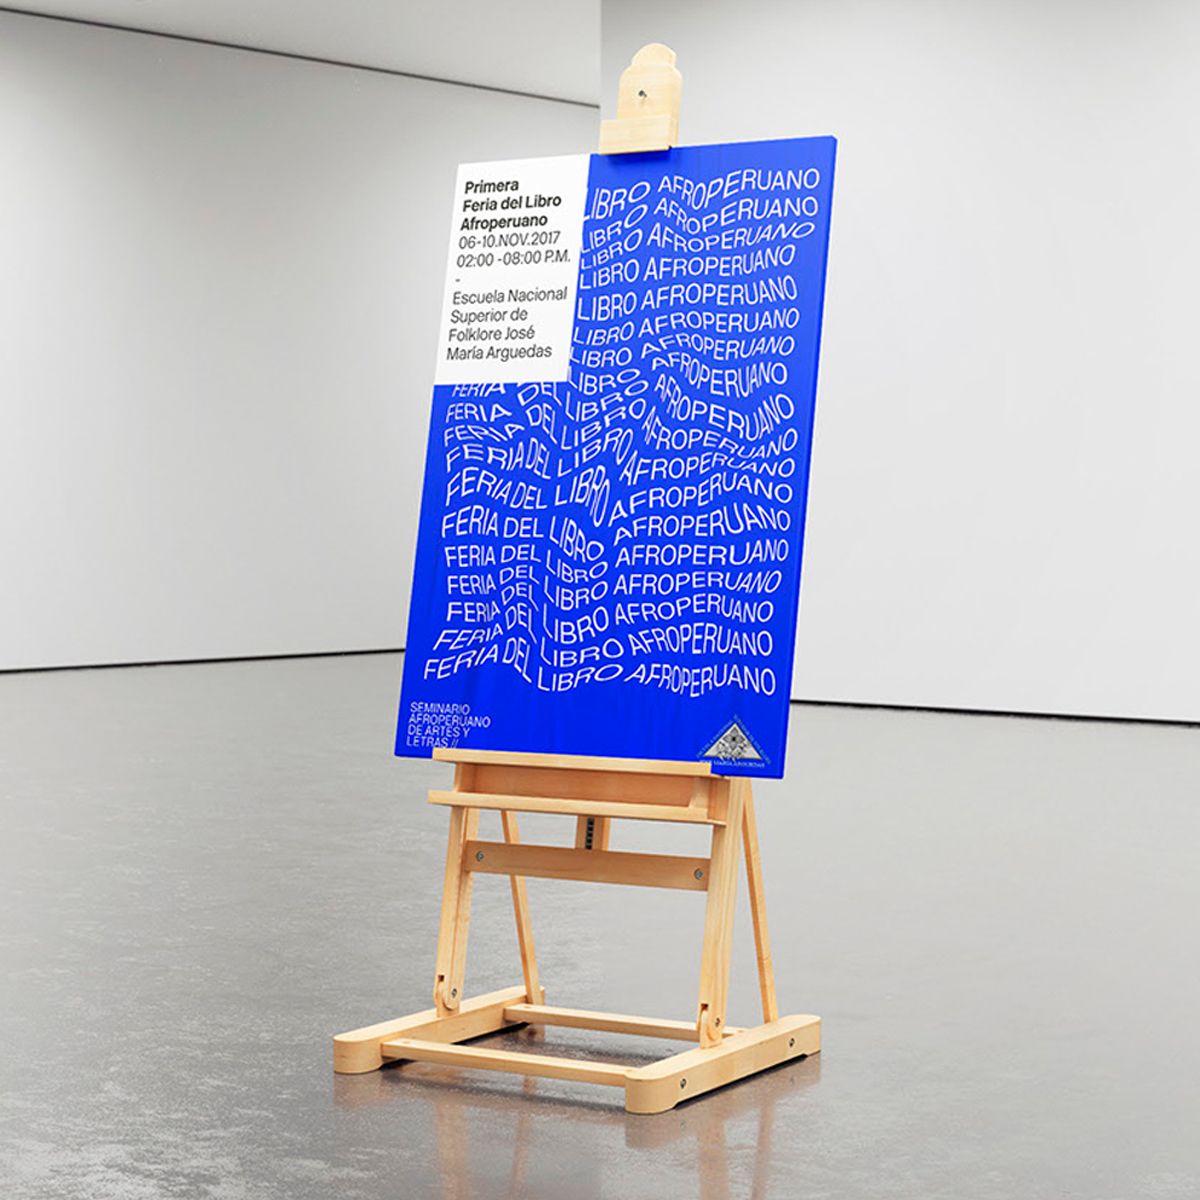 Primera
Feria del Libro
Afroperuano
06-10.NOV.2017
02:00 -08:00 P.M.
-
Escuela Nacional
Superior de
Folklore José
María Arguedas
LIBRO AFROPERUANO
LIBRO AFROPERUANO
LIBRO AFROPERUANO
LIBRO AFROPERUANO
LIBRO AFROPERUANO
LIBRO AFROPERUANO
LIBRO AFROPERUANO
FERIA DEL LIBRO AFROPERUANO
FERIA DEL LIBRO AFROPERUANO
FERIA DEL LIBRO AFROPERUANO
FERIA DEL LIBRO AFROPERUANO
FERIA DEL LIBRO AFROPERUANO
FERIA DEL LIBRO AFROPERUANO
FERIA DEL LIBRO AFROPERUANO
FERIA DEL LIBRO AFROPERUANO
FERIA DEL LIBRO AFROPERUANO
FERIA DEL LIBRO AFROPERUANO
FERIA DEL LIBRO AFROPERUANO
SEMINARIO
AFROPERUANO
DE ARTES Y
LETRAS //
JOSÉ MARÍA ARGUEDAS